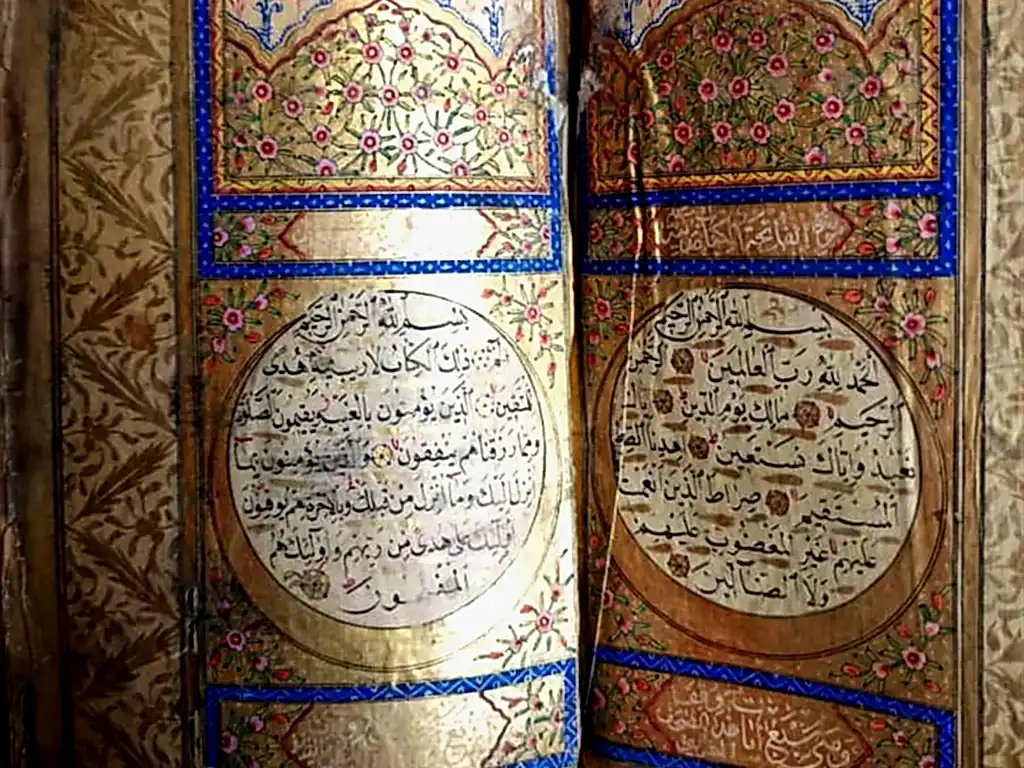 الفاتحة الكتاب
بسم الله الرحمن الرحيم
الحمد لله رب العالمين الرحمن
الرحيم مالك يوم الدين اياك
نعبد واياك نستعين اهدنا الصر
المستقيم صراط الذين انعمت
عليهم غير المغضوب عليهم
ولا الضالين
بسم الله الرحمن الرحيم
الم ذلك الكتاب لا ريب فيه هدى
للمتقين الذين يؤمنون بالغيب ويقيمون الصلوة
ومما رزقناهم ينفقون والذين يؤمنون بما
انزل اليك وما انزل من قبلك وبالاخرة هم يوقنون
اولئك على هدى من ربهم واولئك هم
المفلحون